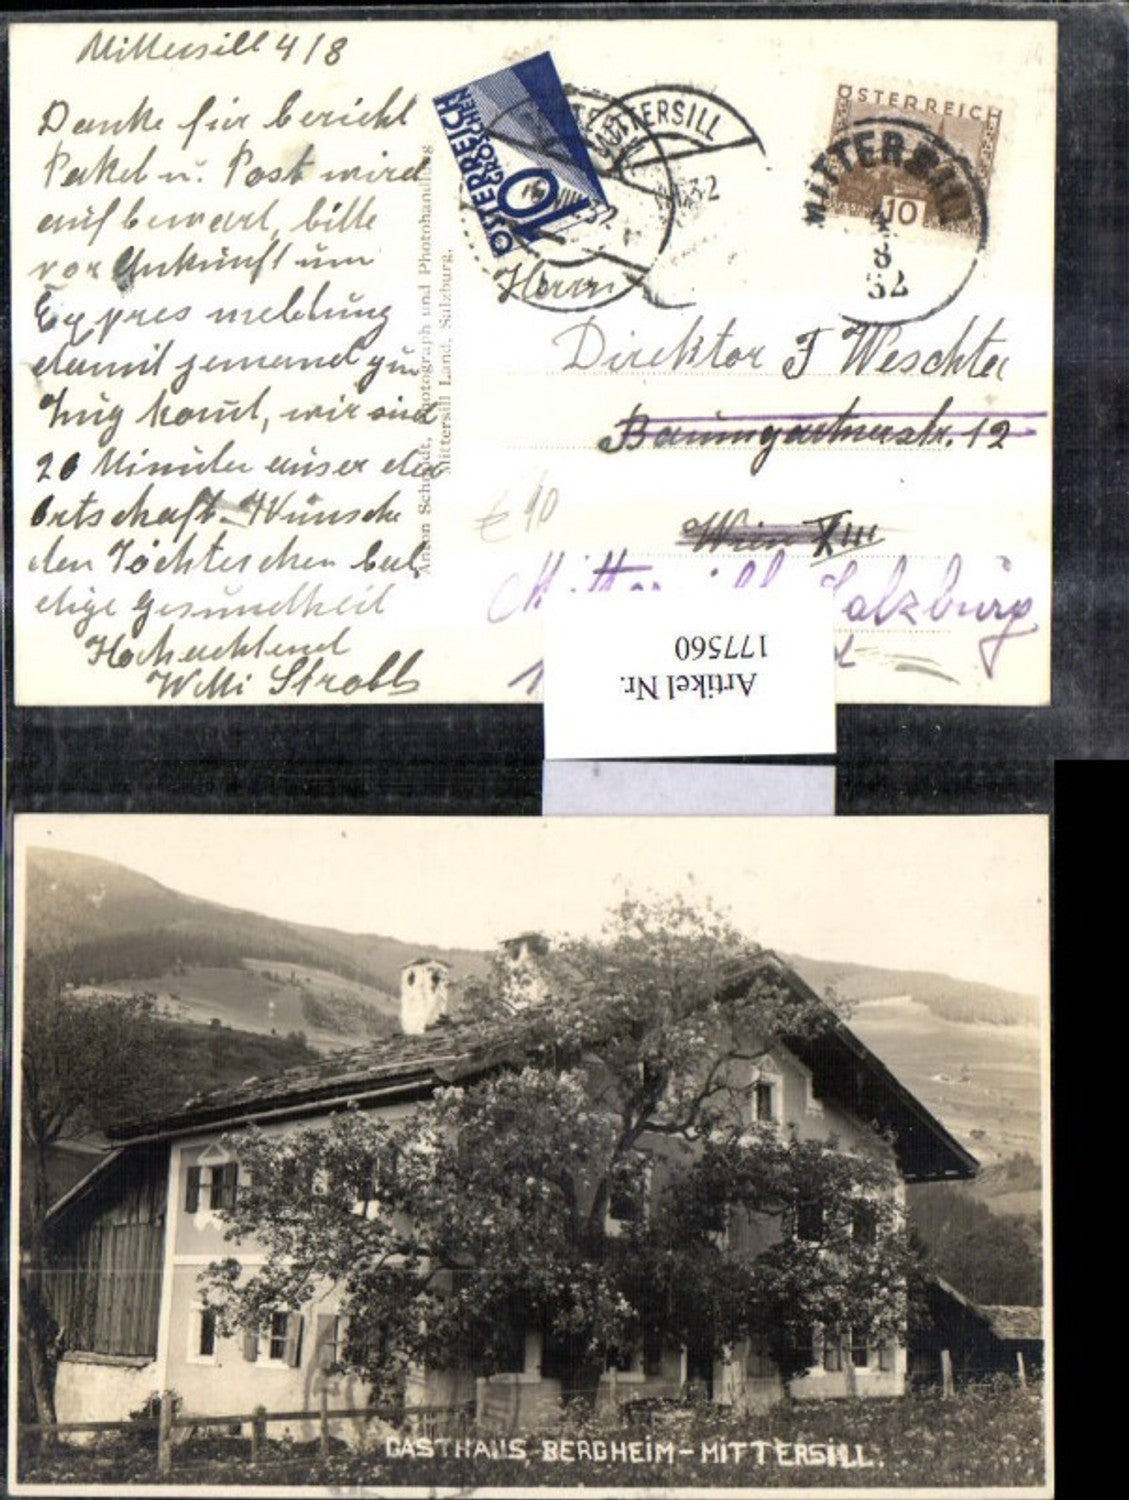 Mittersill 4/8
Danke für bericht
Paket u. Post wird
aufbewart, bitte
vor Ankunft um
Expres meldung
damit jemand zum
Zug komt, wir sind
20 Minuten auser der
Ortschaft. Wünsche
den Töchterchen bal
dige Gesundheit
Hochachtend
Willi Strobl
Anton Schmidt, Photograph und Photohandlung
Mittersill Land. Salzburg.
ÖSTERREICH
10 GROSCHEN
MITTERSILL
ÖSTERREICH
10
MITTERSILL
4
8
32
Herrn
Direktor F Weschta
Baumgartnerstr. 12
Wien XIII
€ 10
Salzburg
Artikel Nr.
177560
GASTHAUS, BERGHEIM - MITTERSILL.